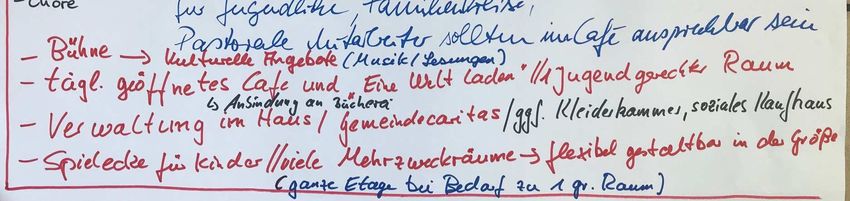 - Chöre
für Jugendliche, Familienkreise,
Pastorale Mitarbeiter sollten im Cafe ansprechbar sein
- Bühne → kulturelle Angebote (Musik/Lesungen)
- tägl. geöffnetes Cafe und "Eine Welt Laden" // 1 jugendgerechter Raum
↳ Anbindung an Bücherei
- Verwaltung im Haus / Gemeindecaritas / ggf. Kleiderkammer, soziales Kaufhaus
- Spielecke für Kinder // viele Mehrzweckräume → flexibel gestaltbar in der Größe
(ganze Etage bei Bedarf zu 1 gr. Raum)